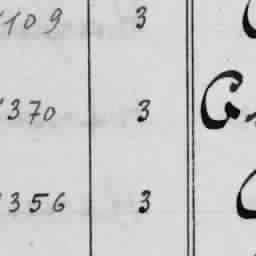 109 3
370 3 G
356 3